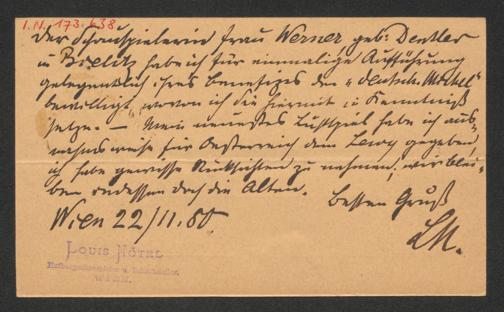 I.N. 173.638
Der Schauspielerin Frau Werner, geb: Dentler
in Bielitz habe ich für einmalige Aufführung
gelegentlich ihres Benefizes den "deutsch.
bewilligt, wovon ich Sie hiermit in Kenntniß
setze. — Mein neuestes Lustspiel habe ich aus-
nahmsweise für Oesterreich dem Lewy gegeben,
ich habe gewisse Rücksichten zu nehmen, wir blei-
ben indessen doch die Alten.
Besten Gruß
Wien 22/11.80.
LN.
LOUIS NÖTEL
Hofburgschauspieler u.
WIEN.